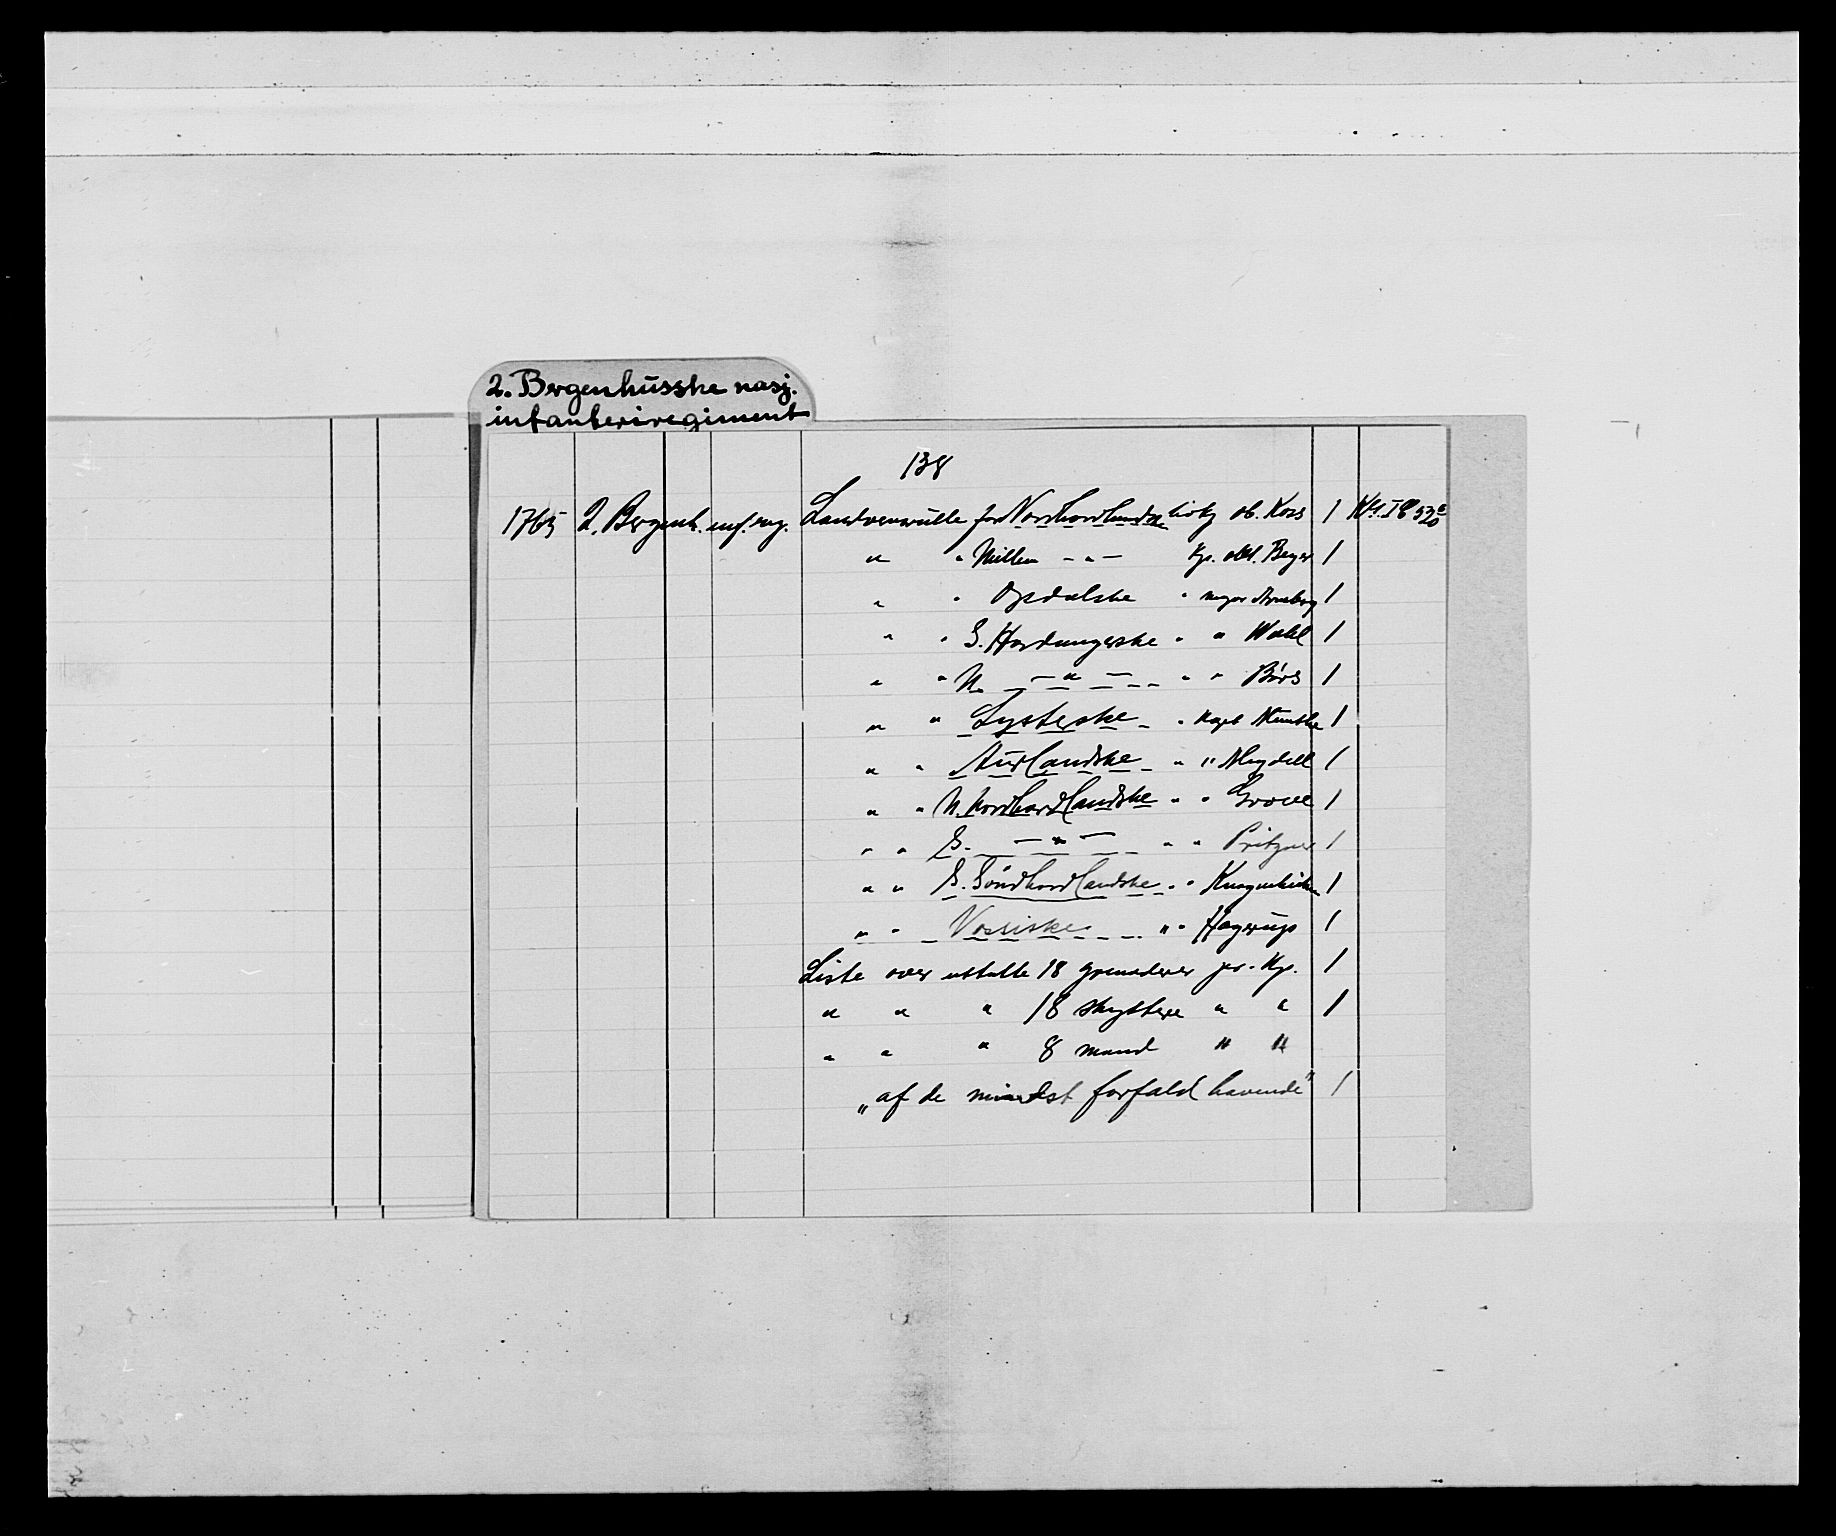 2. Bergenhusske nasj.
infanteriregiment
138
1765 2. Bergenh. inf. reg. Landvernrulle for Nordhordlandske livkp ob. Koss 1
" " Millem - " - kp. oblt. Beyer 1
" " Opdalske " major Arneberg 1
" " S. Hardangerske " " Wahl 1
" " N. - " - " " Børs 1
" " Lysterske " kapt 1
" " Aurlandske " " Meydell 1
" " N. Nordhordlandske " " Grove 1
" " S. - " - " " Pritzier 1
" " S. Søndhordlandske " " 1
" " Vossiske " " Hagerups 1
Liste over uttatte 18 grenaderer pr. Kp. 1
" " " 18 skyttere " " 1
" " " 8 mand " "
„af de mindst forfald havende" 1